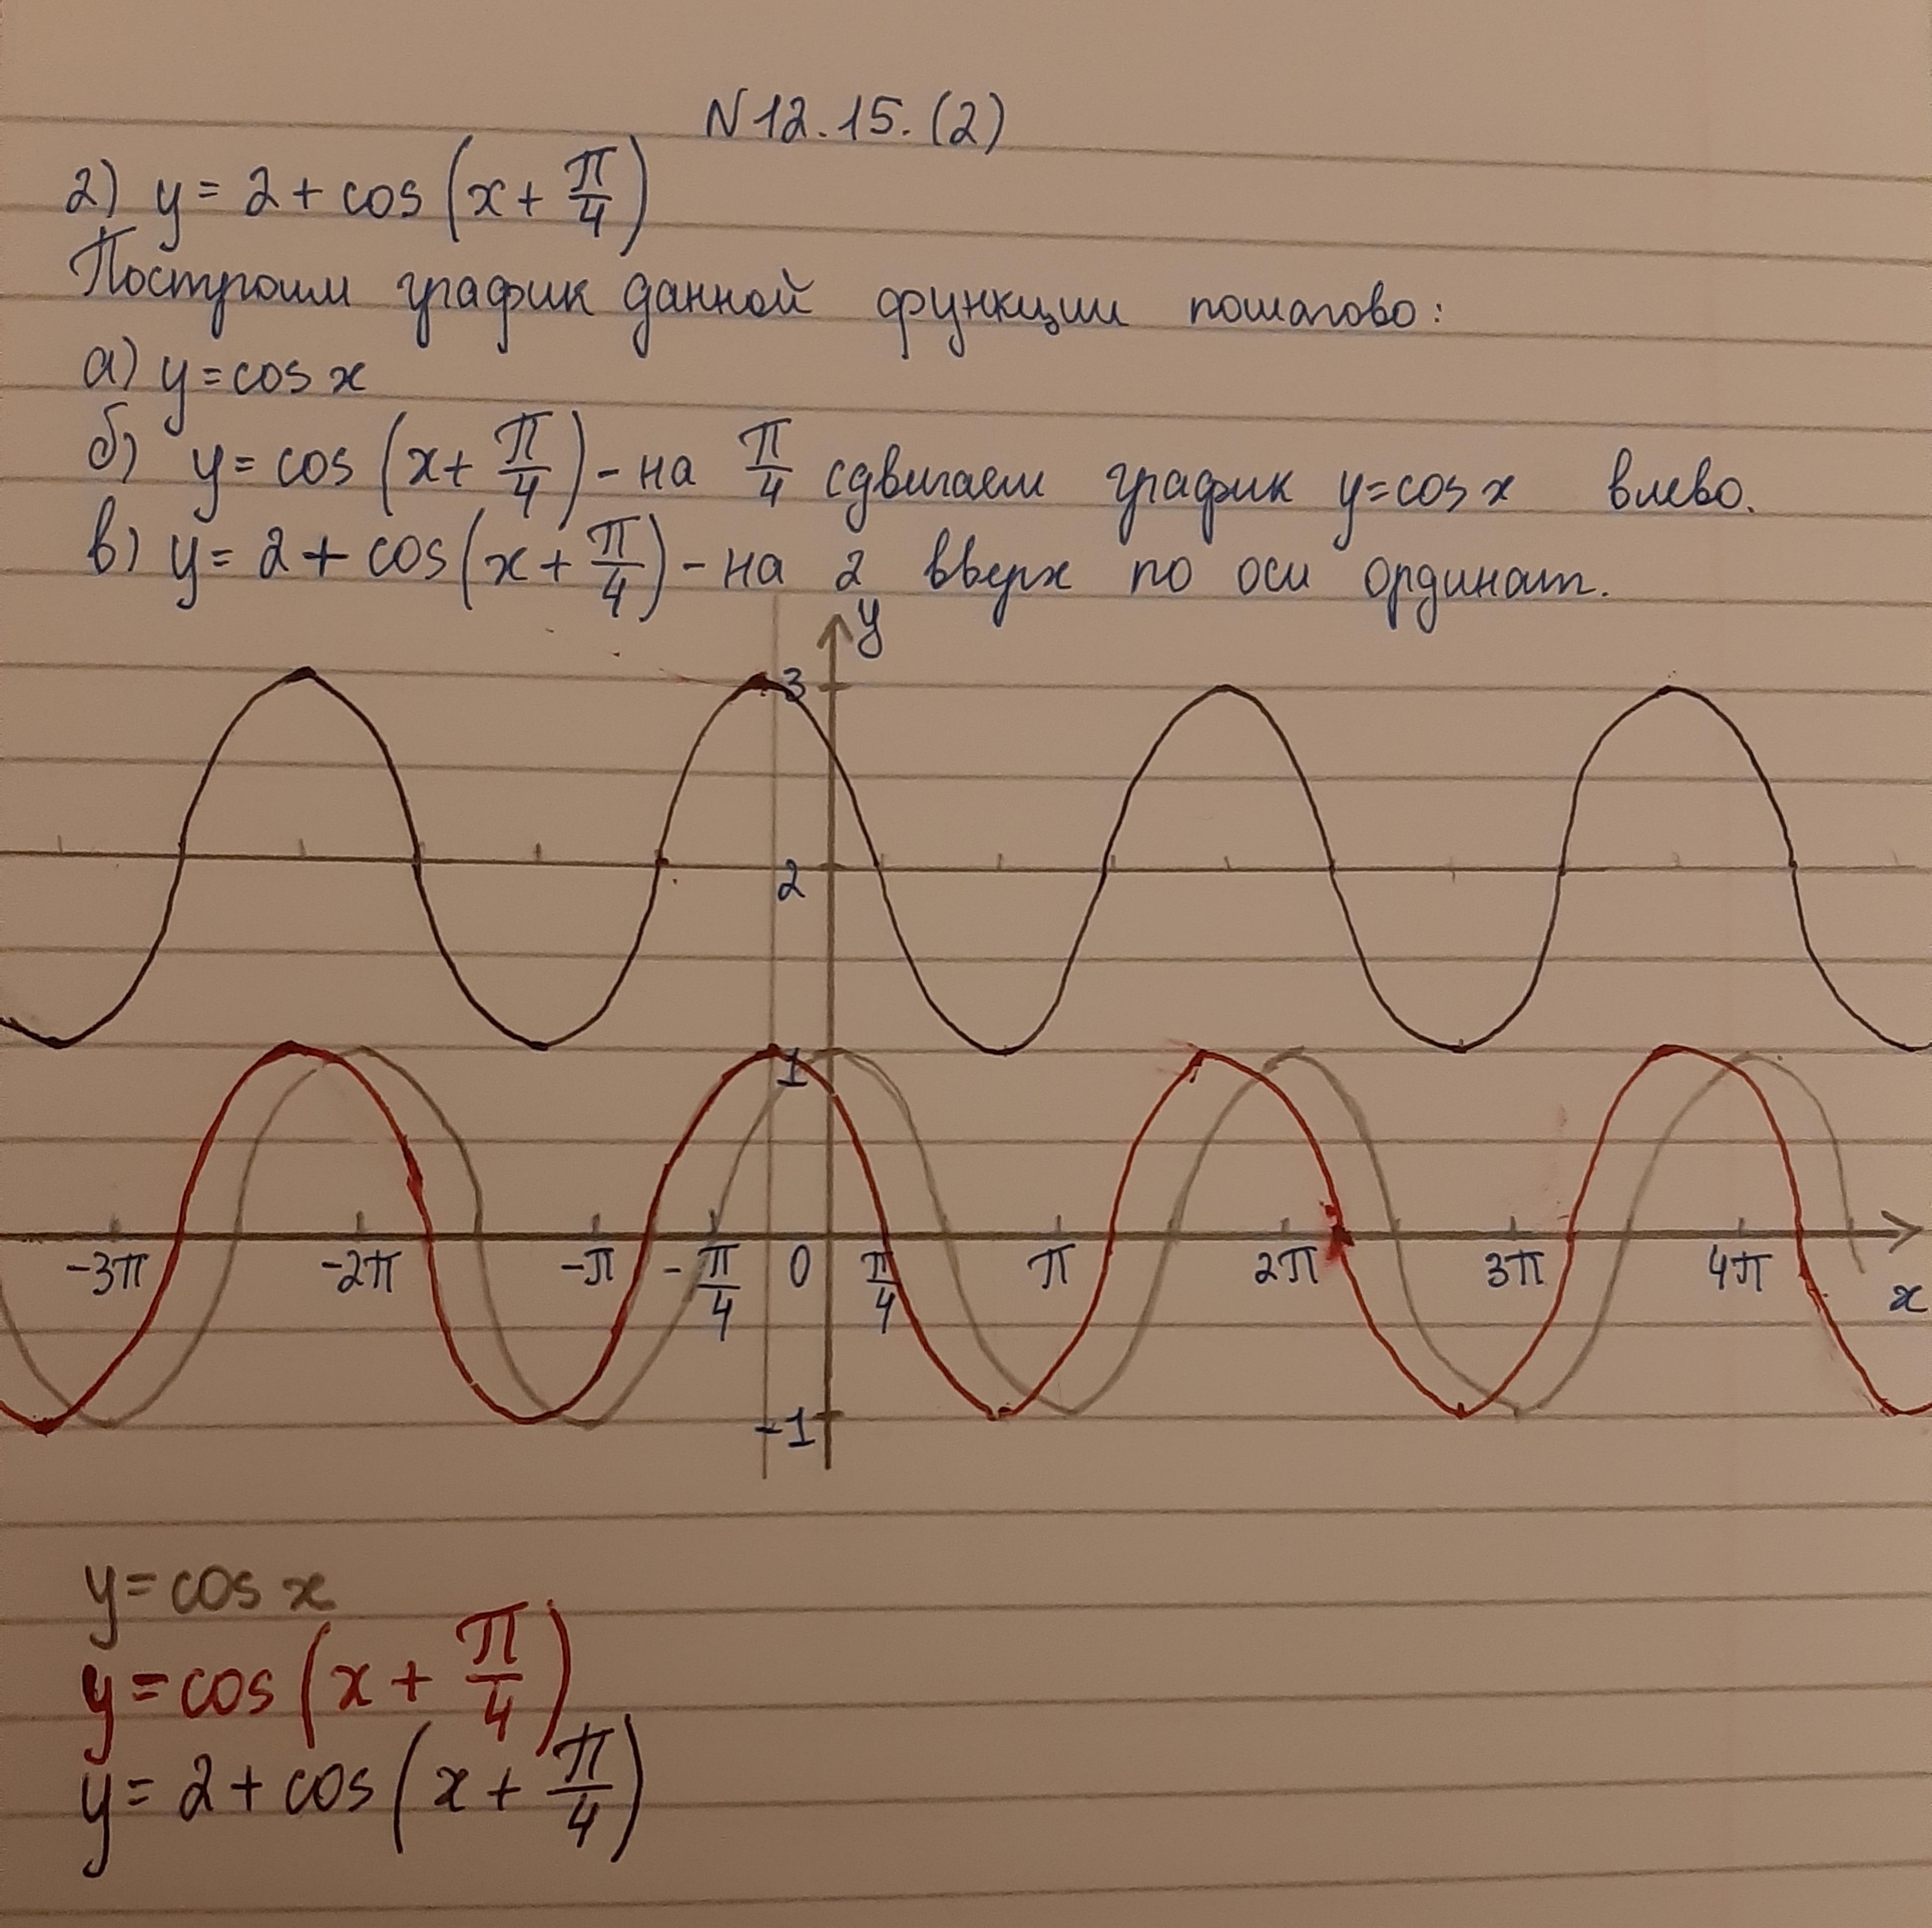 N12.15.(2)
2) y = 2 + cos (x + π/4)
Построим график данной функции пошагово:
а) y = cos x
б) y = cos (x + π/4) - на π/4 сдвигаем график y = cos x влево.
в) y = 2 + cos (x + π/4) - на 2 вверх по оси ординат.
y
3
2
1
-3π -2π -π -π/4 0 π/4 π 2π 3π 4π x
-1
y = cos x
y = cos (x + π/4)
y = 2 + cos (x + π/4)